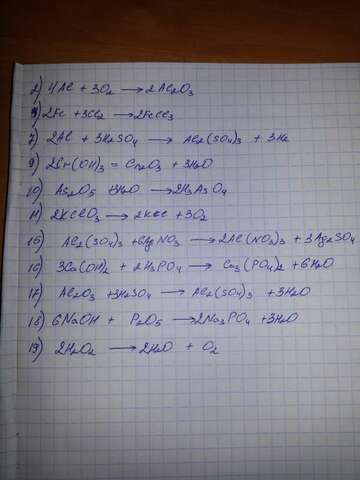 2) 4Al + 3O2 → 2Al2O3
3) 2Fe + 3Cl2 → 2FeCl3
7) 2Al + 3H2SO4 → Al2(SO4)3 + 3H2
9) 2Cr(OH)3 = Cr2O3 + 3H2O
10) As2O5 + 3H2O → 2H3AsO4
11) 2KClO3 → 2KCl + 3O2
15) Al2(SO4)3 + 6AgNO3 → 2Al(NO3)3 + 3Ag2SO4
16) 3Ca(OH)2 + 2H3PO4 → Ca3(PO4)2 + 6H2O
17) Al2O3 + 3H2SO4 → Al2(SO4)3 + 3H2O
18) 6NaOH + P2O5 → 2Na3PO4 + 3H2O
19) 2H2O2 → 2H2O + O2